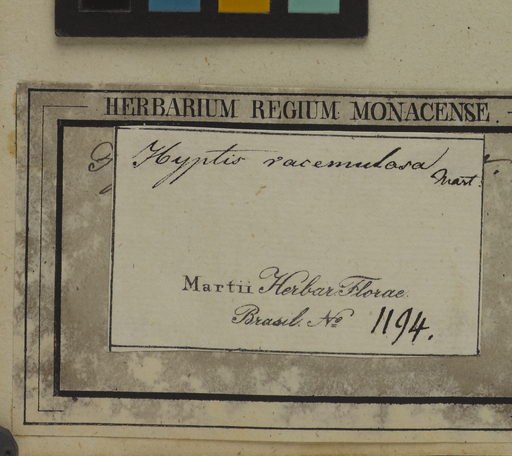 HERBARIUM REGIUM MONACENSE.
Hyptis racemulosa
Mart:
Martii Herbar. Florae
Brasil. No 1194.